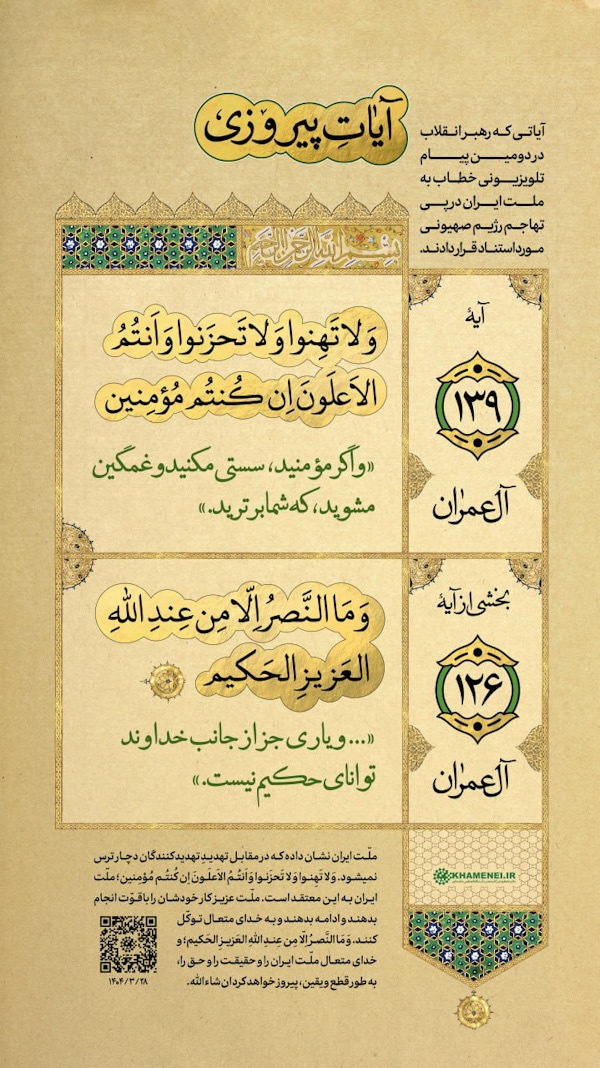 آیاتِ پیروزی
آیاتی که رهبر انقلاب
در دومین پیام
تلویزیونی خطاب به
ملت ایران در پی
تهاجم رژیم صهیونی
مورد استناد قرار دادند.
بسم الله الرحمن الرحیم
آیهٔ
۱۳۹
آل‌عمران
وَلا تَهِنوا وَلا تَحزَنوا وَاَنتُمُ
الاَعلَونَ اِن کُنتُم مُؤمِنین
«و اگر مؤمنید، سستی مکنید و غمگین
مشوید، که شما برترید.»
بخشی از آیهٔ
۱۲۶
آل‌عمران
وَمَا النَّصرُ اِلّا مِن عِندِ اللهِ
العَزیزِ الحَکیم
«... و یاری جز از جانب خداوند
توانای حکیم نیست.»
KHAMENEI.IR
ملّت ایران نشان داده که در مقابل تهدیدِ تهدیدکنندگان دچار ترس
نمیشود. وَلا تَهِنوا وَلا تَحزَنوا وَاَنتُمُ الاَعلَونَ اِن کُنتُم مُؤمنین؛ ملّت
ایران به این معتقد است. ملّت عزیز کار خودشان را با قوّت انجام
بدهند و ادامه بدهند و به خدای متعال توکّل
کنند. وَمَا النَّصرُ اِلّا مِن عِندِ اللهِ العَزیزِ الحَکیم؛ و
خدای متعال ملّت ایران را و حقیقت را و حق را،
به طور قطع و یقین، پیروز خواهد کرد ان‌شاءالله.
۱۴۰۴/۳/۲۸